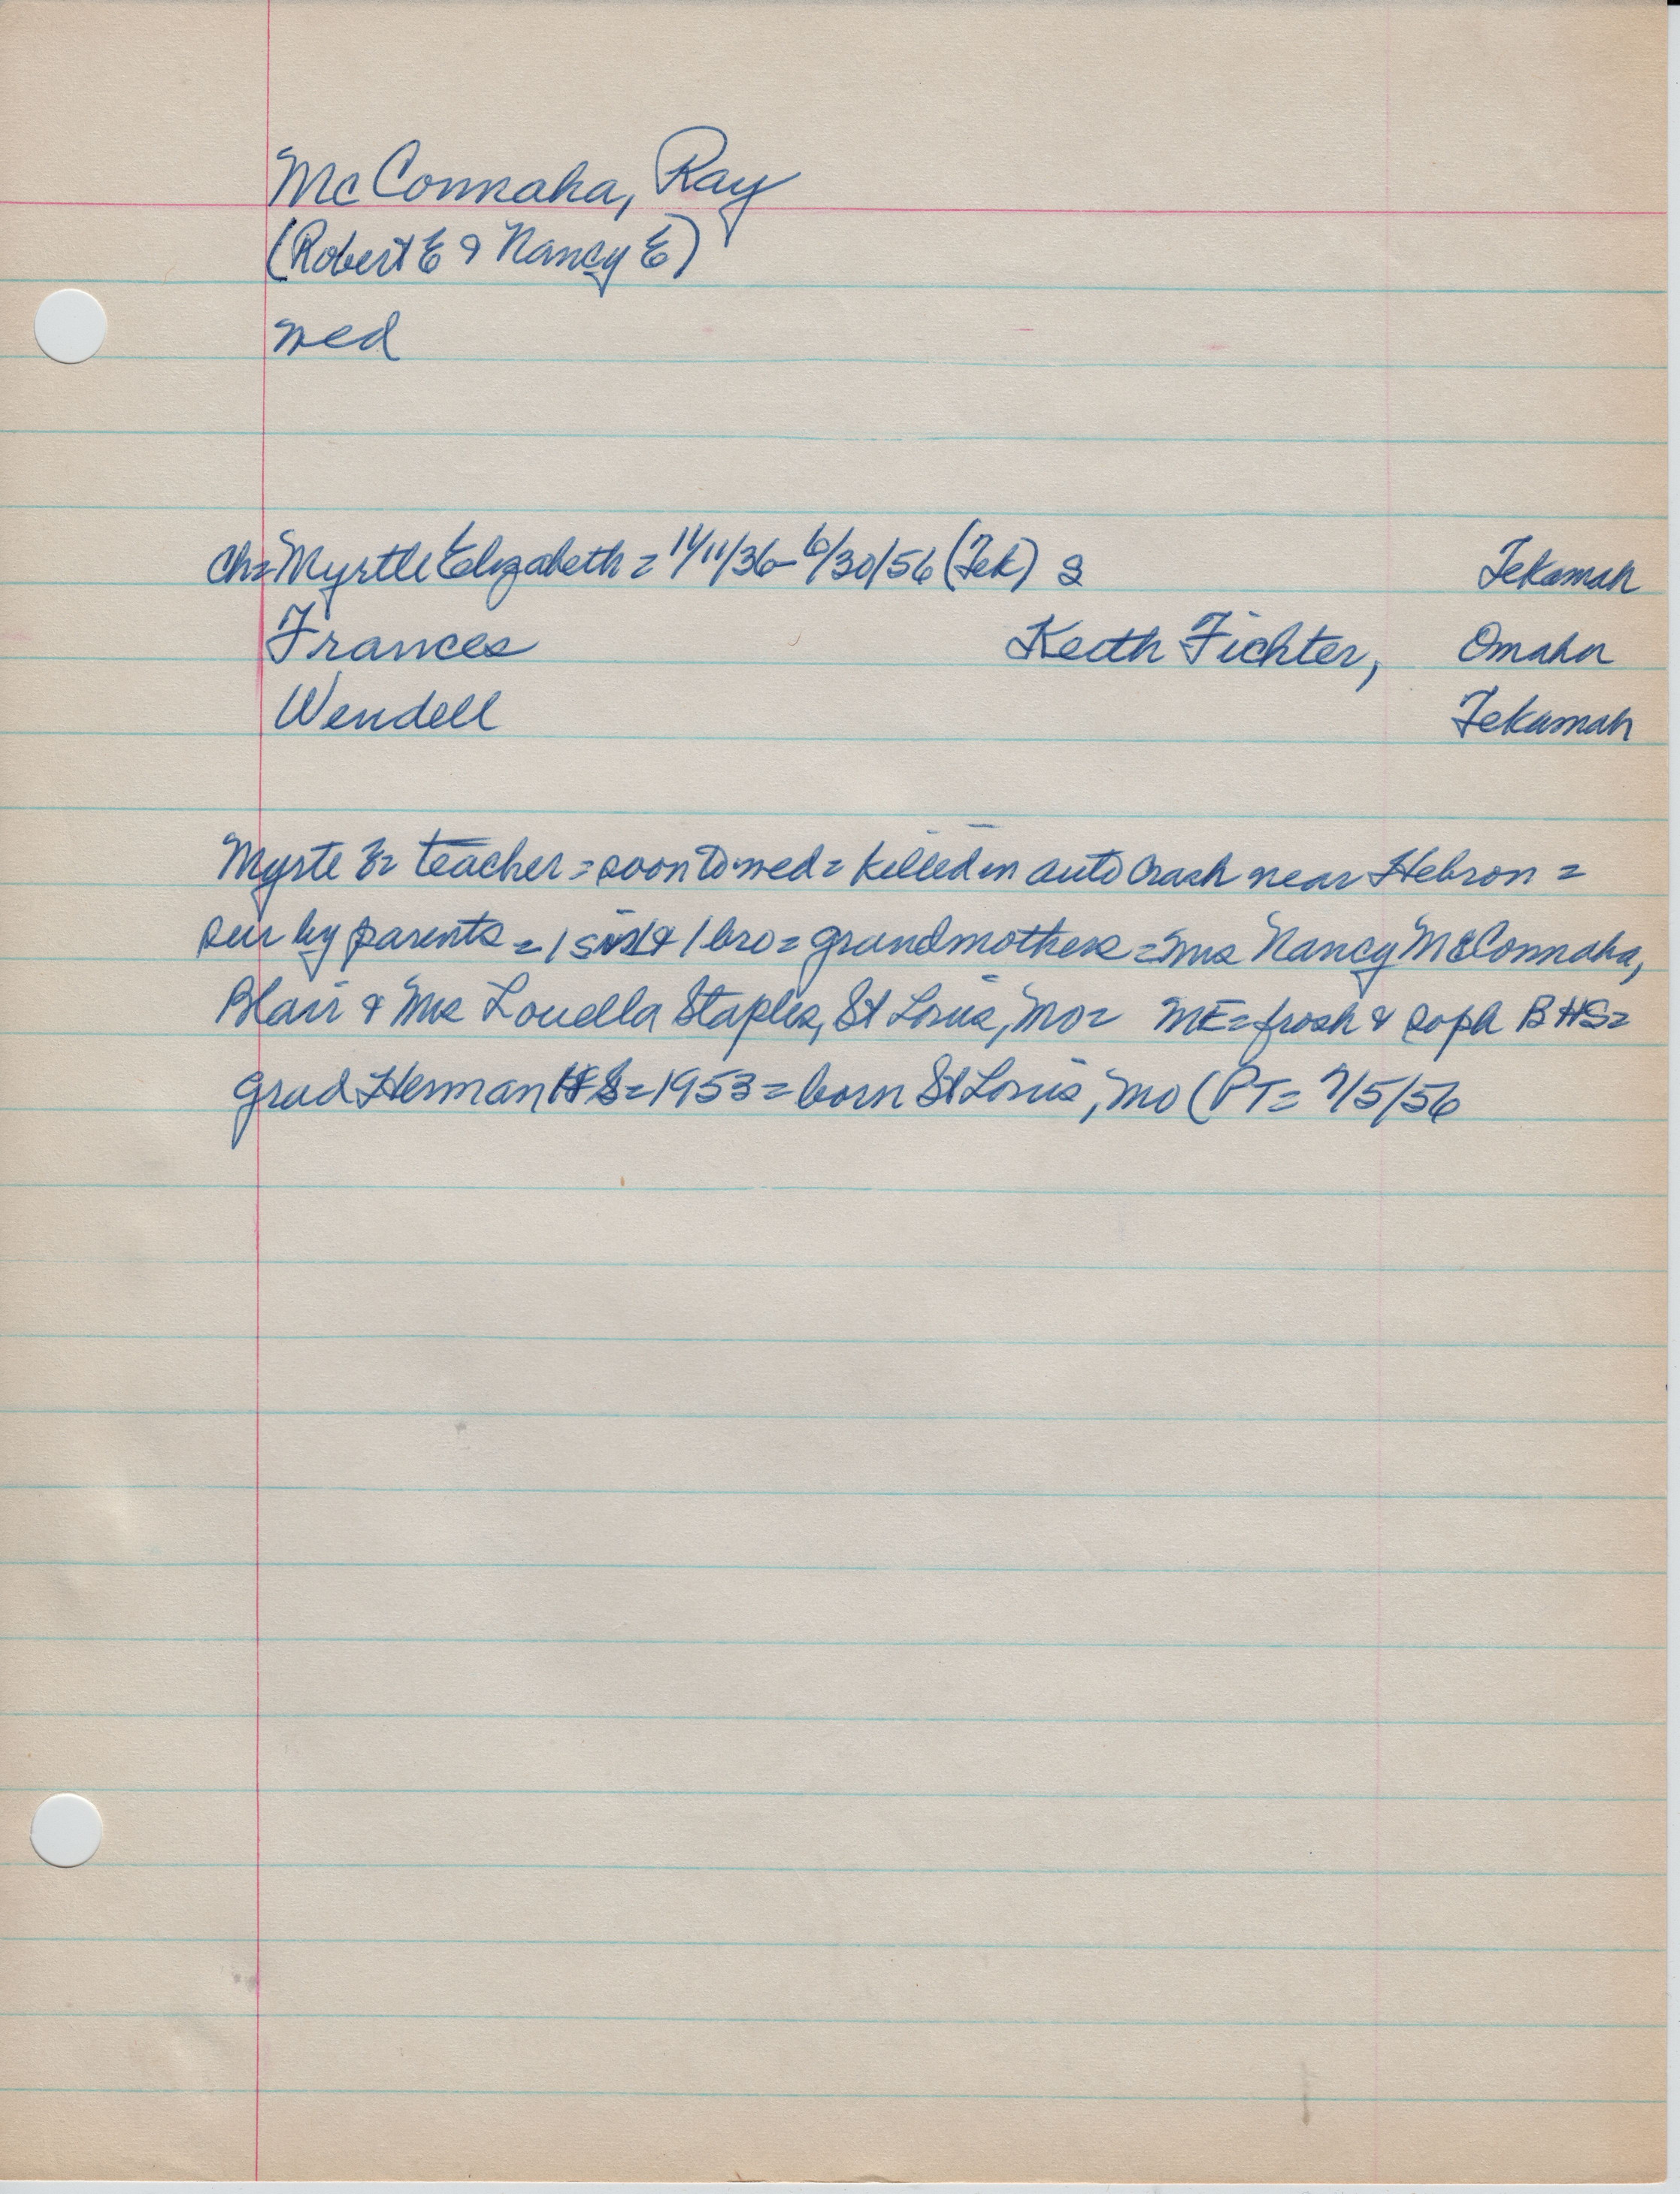 McConnaha, Ray
(Robert E & Nancy E)
wed
Ch= Myrtle Elizabeth = 11/11/36-6/30/56 (Tek) S Tekamah
Frances Keith Fichter, Omaha
Wendell Tekamah
Myrte E= teacher = soon to wed = killed in auto crash near Hebron =
sur by parents = 1 sis & 1 bro = grandmothers = Mrs Nancy McConnaha,
Blair & Mrs Louella Staples, St Louis, Mo = ME = frosh & soph BHS =
grad Herman HS = 1953 = born St Louis, Mo (PT = 7/5/56